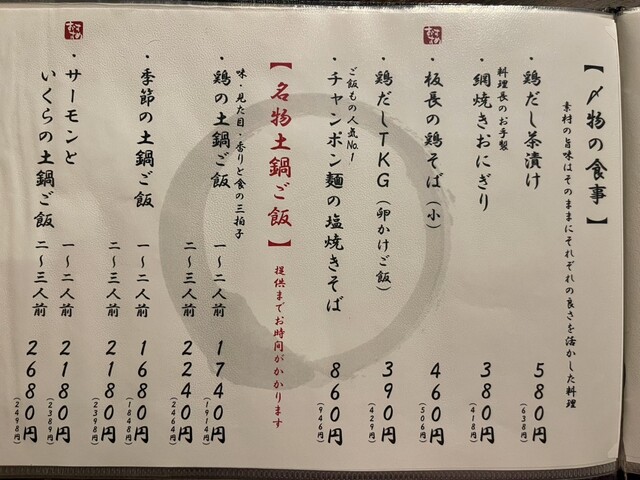 【〆物の食事】
素材の旨味はそのままにそれぞれの良さを活かした料理
・鶏だし茶漬け 580円
(638円)
料理長のお手製
・網焼きおにぎり 380円
(418円)
おすすめ
・板長の鶏そば(小) 460円
(506円)
・鶏だしTKG(卵かけご飯) 390円
(429円)
ご飯もの人気No.1
・チャンポン麺の塩焼きそば 860円
(946円)
【名物土鍋ご飯】 提供までお時間がかかります
味・見た目・香りと食の三拍子
・鶏の土鍋ご飯 一~二人前 1740円
(1914円)
二~三人前 2240円
(2464円)
・季節の土鍋ご飯 一~二人前 1680円
(1848円)
二~三人前 2180円
(2398円)
おすすめ
・サーモンと
いくらの土鍋ご飯
一~二人前 2180円
(2389円)
二~三人前 2680円
(2498円)